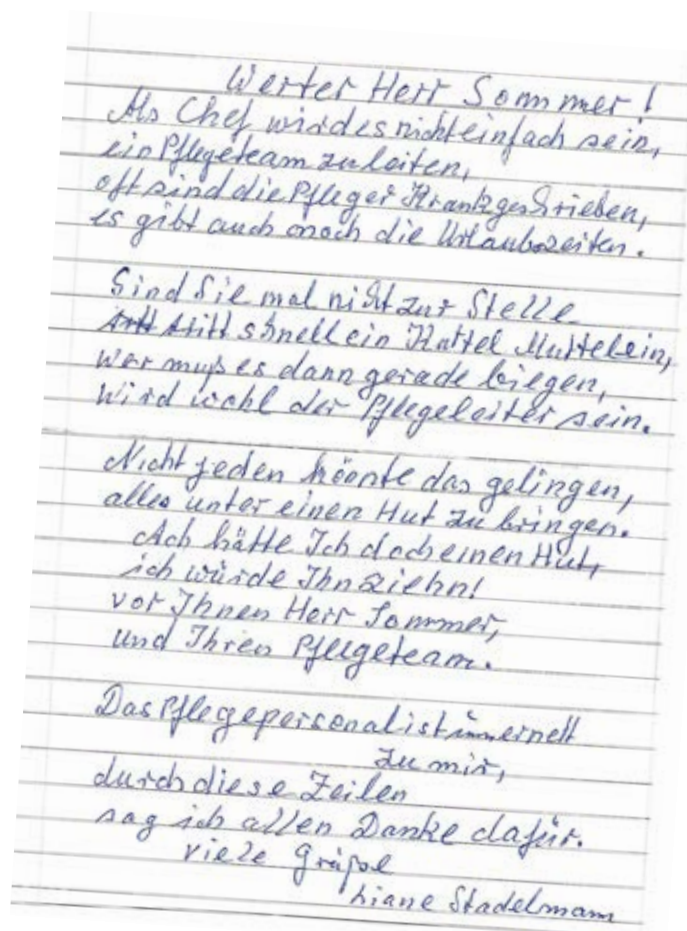 Werter Herr Sommer!
Als Chef wird es nicht einfach sein,
ein Pflegeteam zu leiten,
oft sind die Pfleger Krankgeschrieben,
es gibt auch noch die Urlaubszeiten.
Sind Sie mal nicht zur Stelle
tritt schnell ein Kuttel Muttel ein,
wer muß es dann gerade biegen,
Wird wohl der Pflegeleiter sein.
Nicht jeden könnte das gelingen,
alles unter einen Hut zu bringen.
Ach hätte Ich doch einen Hut,
ich würde Ihn ziehn!
vor Ihnen Herr Sommer,
und Ihren Pflegeteam.
Das Pflegepersonal ist immer nett
zu mir,
durch diese Zeilen
sag ich allen Danke dafür.
viele Grüße
Liane Stadelmann